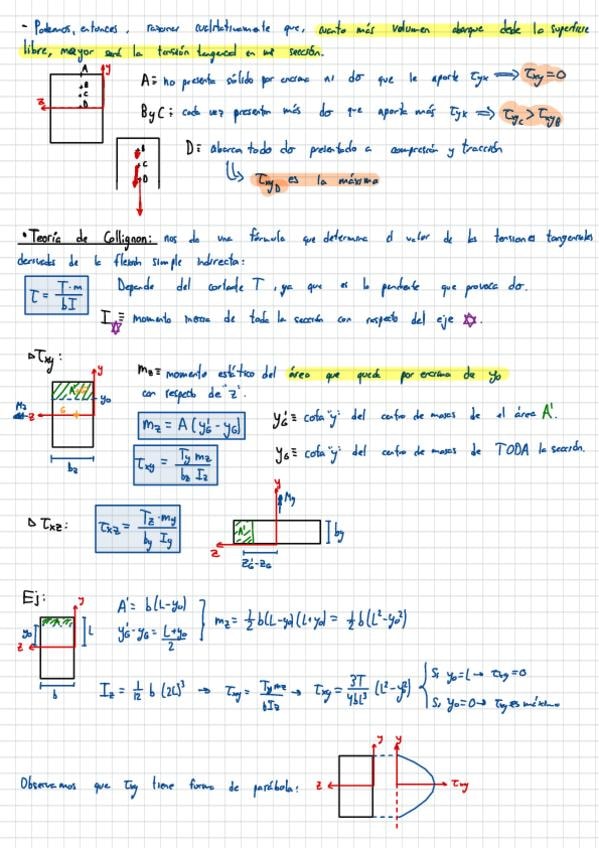 - Podemos, entonces, razonar cualitativamente que, cuanto más volumen abarque desde la superficie
libre, mayor será la tensión tangencial en mi sección.
A
B
C
D
y
z
A ≡ no presenta sólido por encima ni dσ que le aporte τyx ⟹ τxy = 0
B y C ≡ cada vez presentan más dσ que aporta más τyx ⟹ τxyC > τxyB
B
C
D
D ≡ abarca todo dσ presentado a compresión y tracción
↳ τxyD es la máxima
• Teoría de Collignon: nos da una fórmula que determina el valor de las tensiones tangenciales
derivadas de la flexión simple indirecta:
τ = T·m / bI
Depende del cortante T, ya que es la pendiente que provoca dσ.
I✡ ≡ momento inercia de toda la sección con respecto del eje ✡.
▷ τxy:
y
A'
y₀
G
Mz
z
bz
mz ≡ momento estático del área que queda por encima de y₀
con respecto de "z".
mz = A (y'G - yG)
y'G ≡ cota "y" del centro de masas de el área A'.
τxy = Ty mz / bz Iz
yG ≡ cota "y" del centro de masas de TODA la sección.
▷ τxz:
τxz = Tz · my / by Iy
y
My
A'
by
z
z'G - zG
Ej:
y
A'
y₀
L
z
b
A' = b(L-y₀)
y'G - yG = L+y₀ / 2
mz = 1/2 b(L-y₀)(L+y₀) = 1/2 b(L²-y₀²)
Iz = 1/12 b (2L)³ → τxy = Ty mz / bIz → τxy = 3T / 4bL³ (L²-y₀²)
Si y₀=L → τxy = 0
Si y₀=0 → τxy es máximo
Observamos que τxy tiene forma de parábola:
y
y
z
τxy